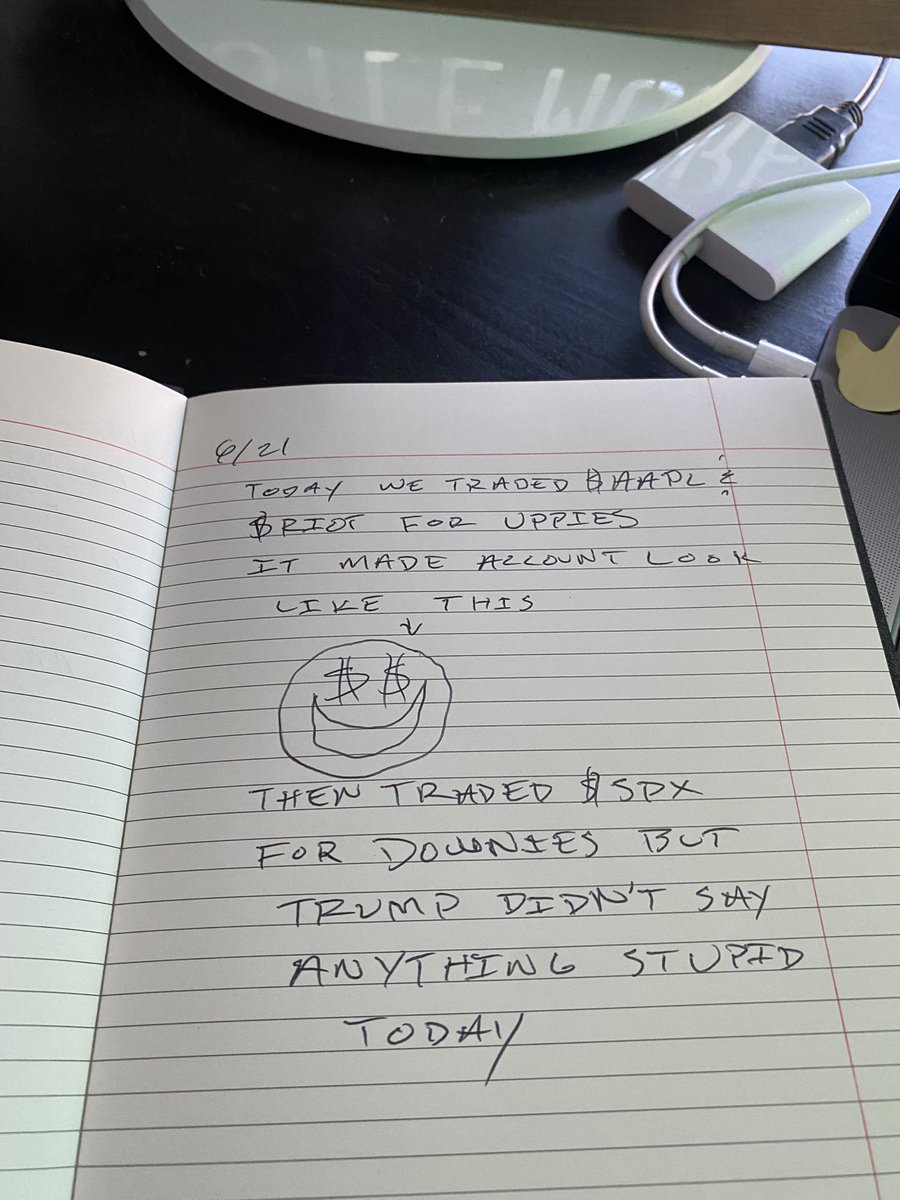 6/21
TODAY WE TRADED $AAPL &
$RIOT FOR UPPIES
IT MADE ACCOUNT LOOK
LIKE THIS
$ $
THEN TRADED $SPX
FOR DOWNIES BUT
TRUMP DIDN'T SAY
ANYTHING STUPID
TODAY